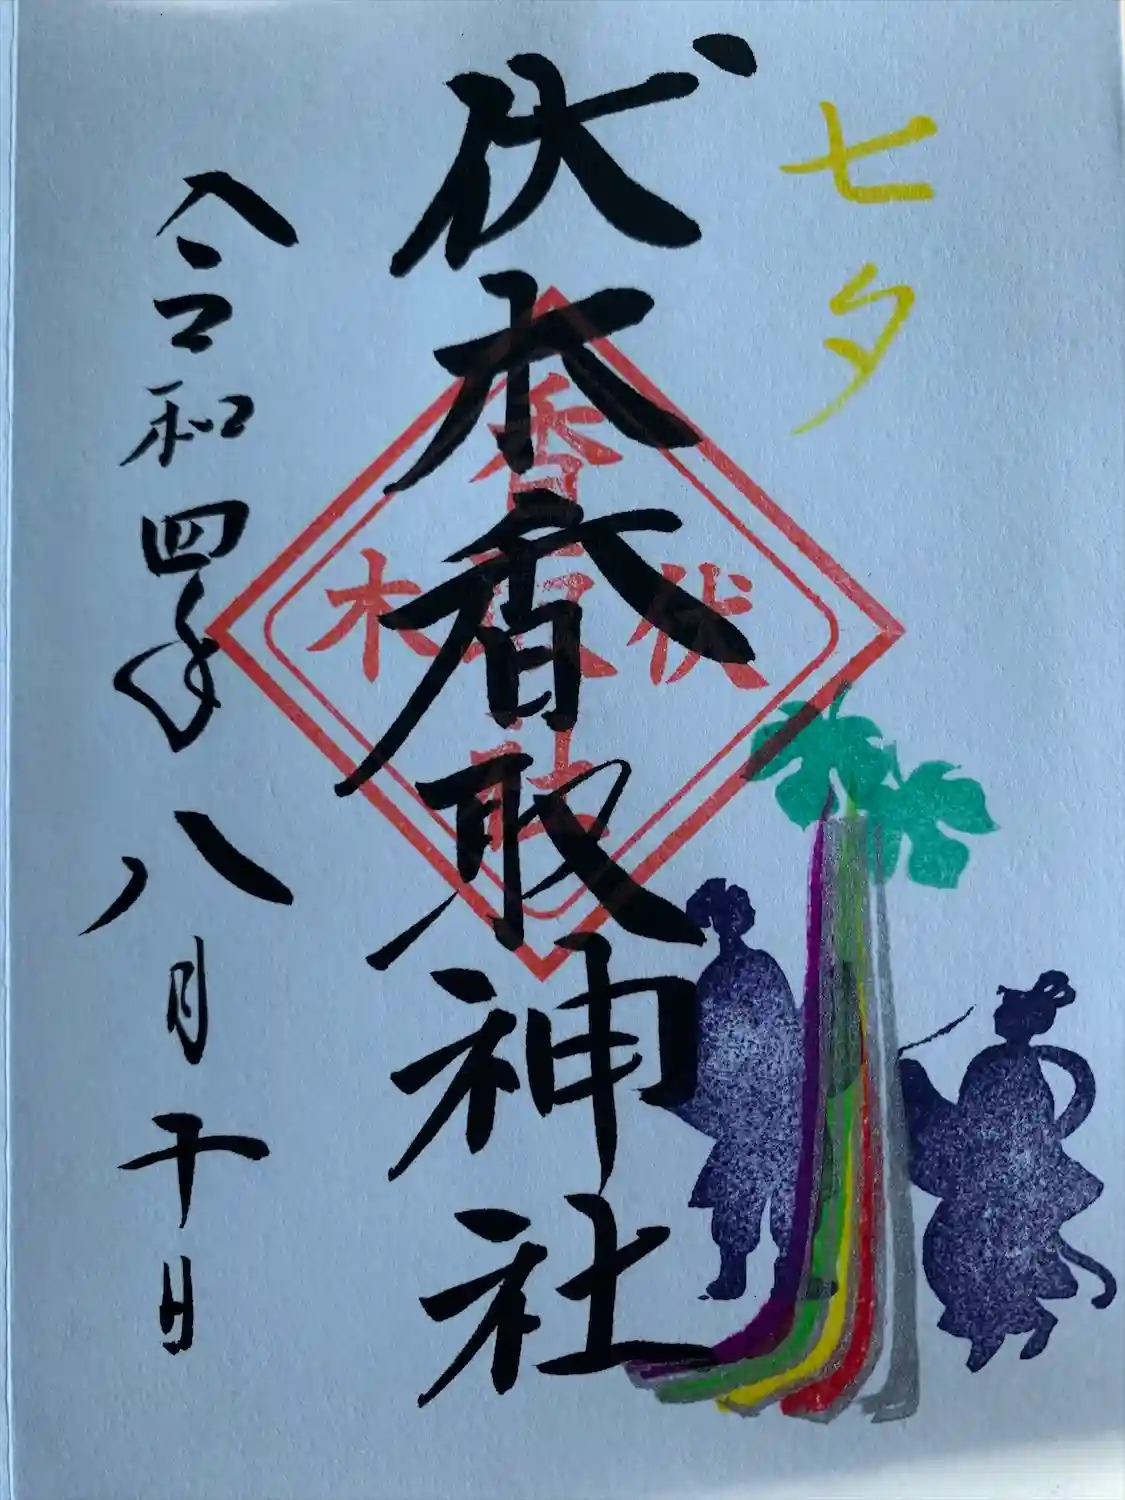 七夕
伏木香取神社
伏木
香取社
令和四年八月十日